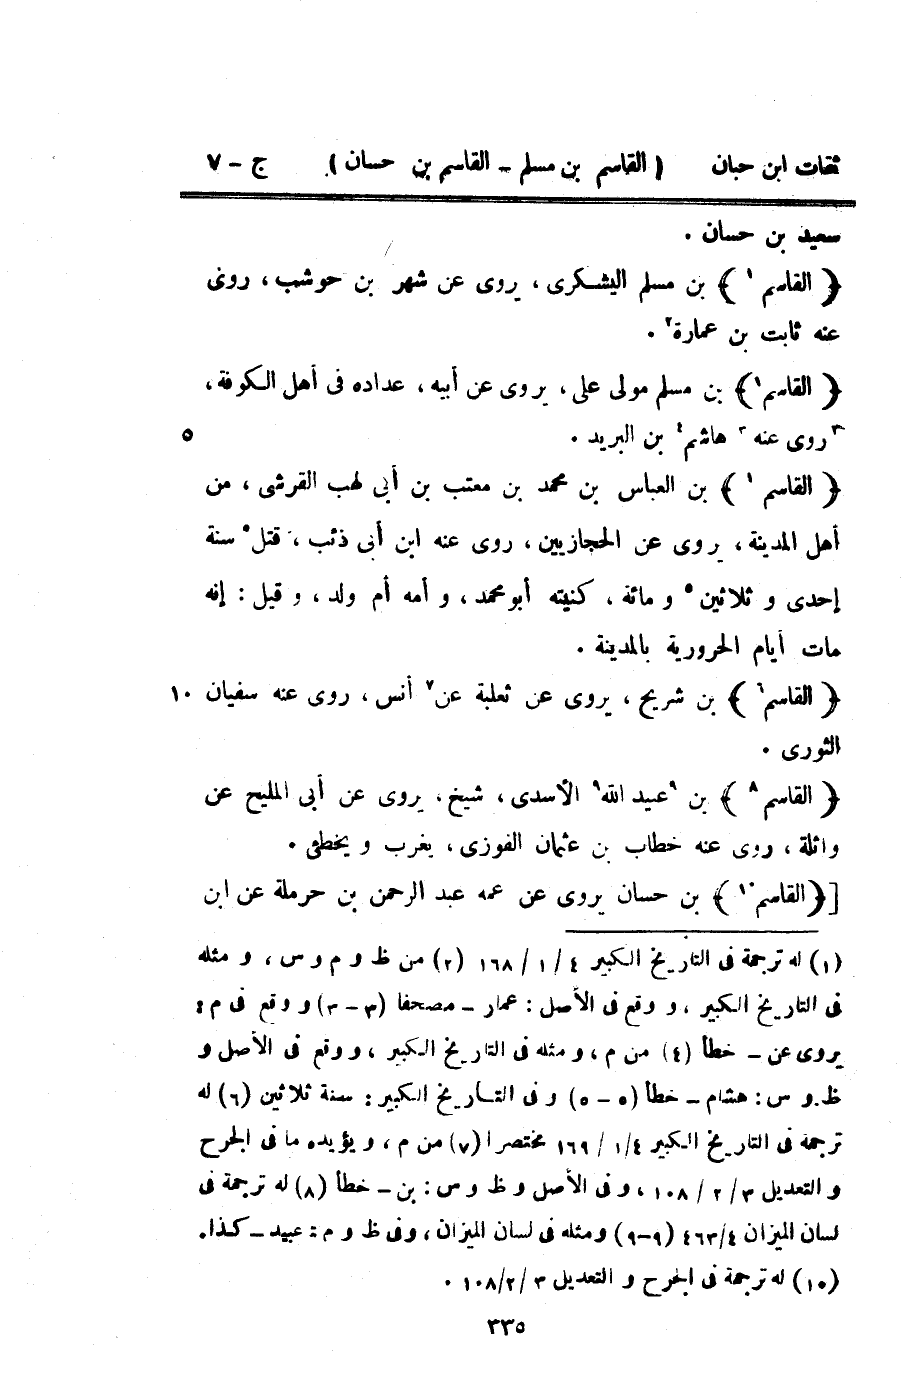 ثقات ابن حبان ( القاسم بن مسلم ــ القاسم بن حسان ) ج - ٧
سعيد بن حسان .
﴿ القاسم ١ ﴾ بن مسلم اليشكرى ، يروى عن شهر بن حوشب ، روى
عنه ثابت بن عمارة٢ .
﴿ القاسم١ ﴾ بن مسلم مولى على ، يروى عن أبيه ، عداده فى أهل الكوفة ،
٣ روى عنه ٣ هاشم٤ بن البريد . ٥
﴿ القاسم ١ ﴾ بن العباس بن محمد بن معتب بن أبى لهب القرشى ، من
أهل المدينة ، يروى عن الحجازيين ، روى عنه ابن أبى ذئب ، قتل ٥ سنة
إحدى و ثلاثين ٥ و مائة ، كنيته أبو محمد ، و أمه أم ولد ، و قيل : إنه
مات أيام الحرورية بالمدينة .
﴿ القاسم٦ ﴾ بن شريح ، يروى عن ثعلبة عن٧ أنس ، روى عنه سفيان ١٠
الثورى .
﴿ القاسم ٨ ﴾ بن ٩عبيد الله٩ الأسدى ، شيخ ، يروى عن أبى المليح عن
واثلة ، روى عنه خطاب بن عثمان الفوزى ، يغرب و يخطئ .
[﴿ القاسم١٠ ﴾ بن حسان يروى عن عمه عبد الرحمن بن حرملة عن ابن
(١) له ترجمة فى التاريخ الكبير ٤ / ١ / ١٦٨ (٢) من ظ و م و س ، و مثله
فى التاريخ الكبير ، و وقع فى الأصل : عمار ــ مصحفا (٣ - ٣) و وقع فى م :
يروى عن ــ خطأ (٤) من م ، و مثله فى التاريخ الكبير ، و وقع فى الأصل و
ظ و س : هشام ــ خطأ (٥ - ٥) و فى التاريخ الكبير : سنة ثلاثين (٦) له
ترجمة فى التاريخ الكبير ٤/ ١ / ١٦٩ مختصرا (٧) من م ، و يؤيده ما فى الجرح
و التعديل ٣ / ٢ / ١٠٨ ، و فى الأصل و ظ و س : بن ــ خطأ (٨) له ترجمة فى
لسان الميزان ٤/ ٤٦٣ (٩-٩) و مثله فى لسان الميزان ، و فى ظ و م : عبيد ــ كذا .
(١٠) له ترجمة فى الجرح و التعديل ٣ / ٢/ ١٠٨ .
٣٣٥